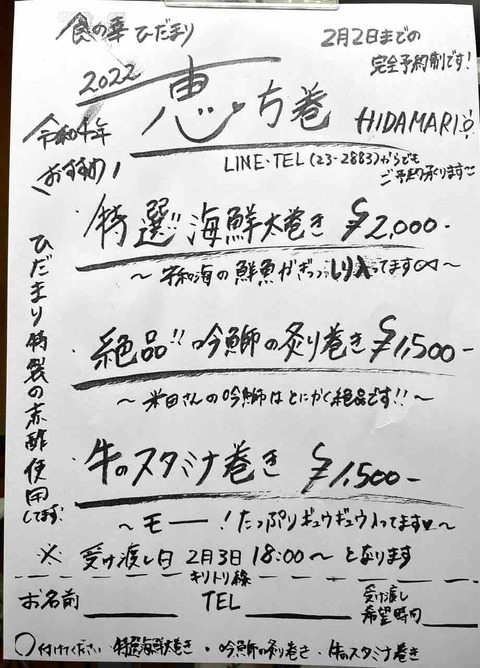 食の華 ひだまり
2月2日までの
完全予約制です!
2022
恵方巻
HIDAMARI
令和4年
おすすめ!
LINE・TEL(23-2883)からでも
ご予約承ります
特選!!海鮮太巻き ¥2,000-
〜宇和海の鮮魚がぎっっしり入ってます〜
絶品!!吟鰤の炙り巻き ¥1,500-
〜米田さんの吟鰤はとにかく絶品です!!〜
牛のスタミナ巻き ¥1,500-
〜モー――!たっぷりギュウギュウ入ってます♥〜
ひだまり特製の赤酢使用してます
※ 受け渡し日 2月3日 18:00〜 となります
キリトリ線
お名前 TEL 受け渡し
希望時間
○付けてください・特選海鮮太巻き・吟鰤の炙り巻き・牛のスタミナ巻き